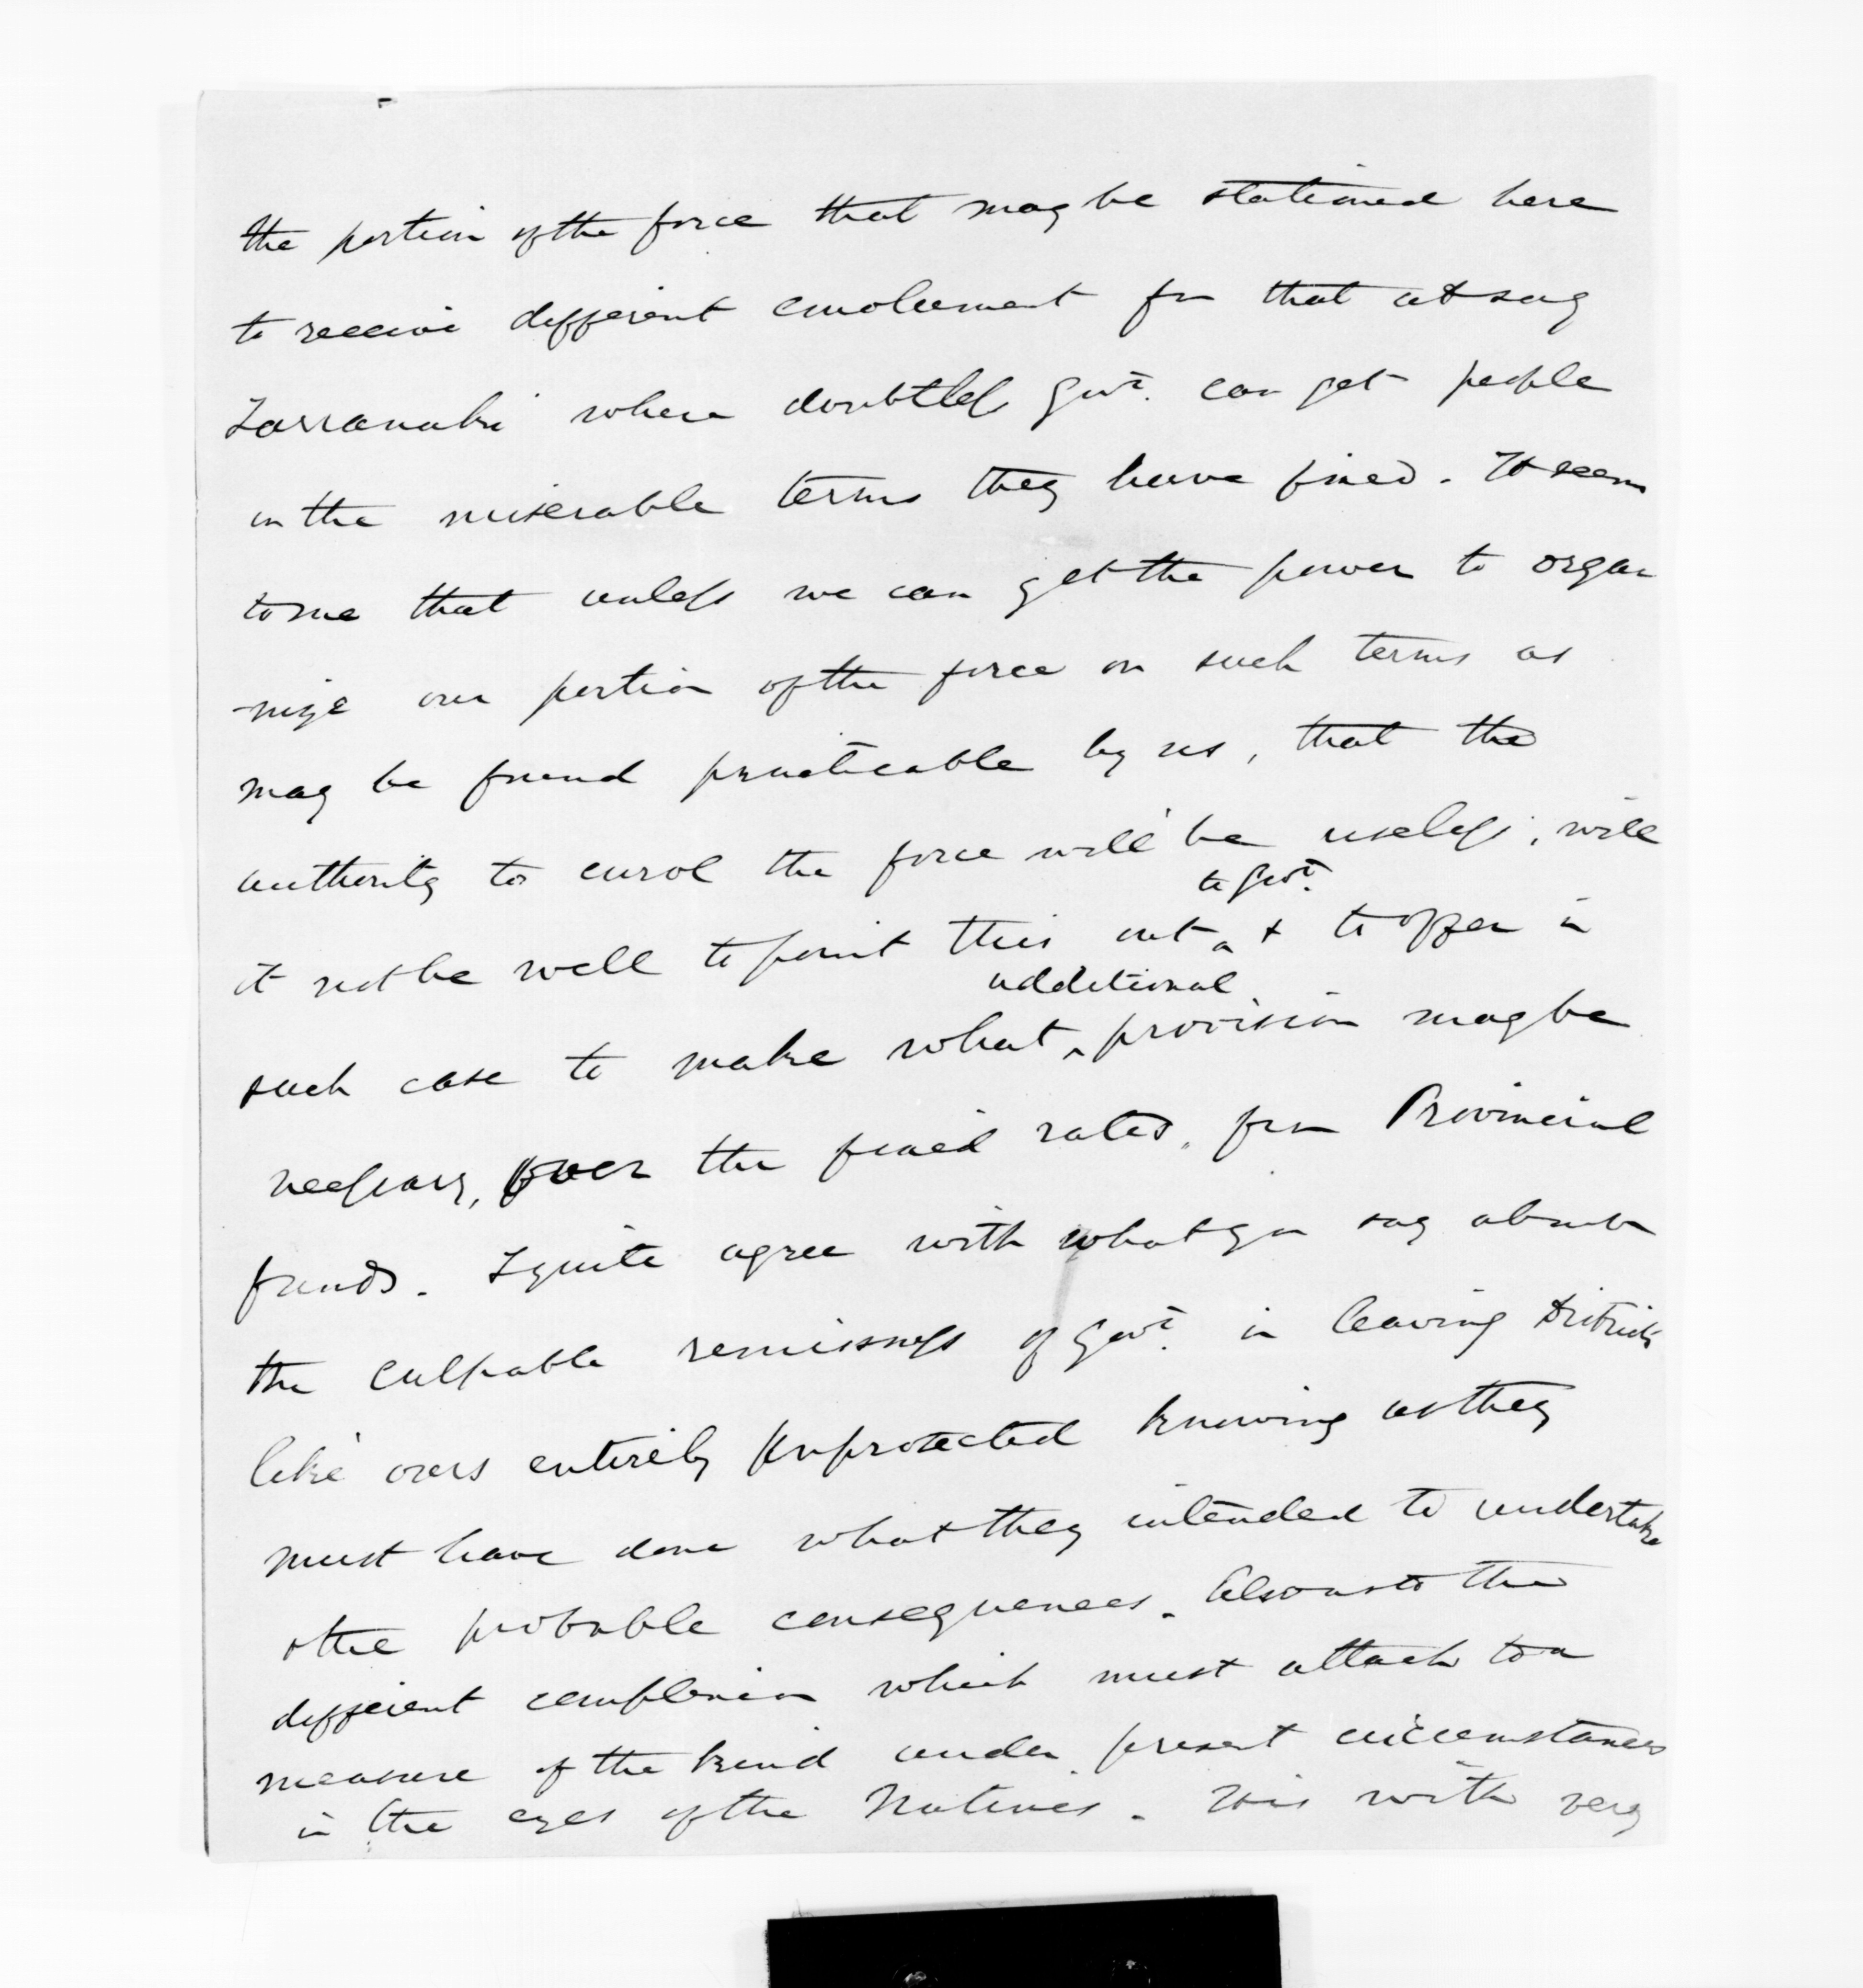 the portion of the force that may be stationed here
to receive different emolument from that at say
Tarranaki where doubtless Govt. can get people
on the miserable terms they have fixed. It seems
to me that unless we can get the power to orga
-nize our portion of the force on such terms as
may be found practicable by us, that the
authority to enrol the force will be useless; will
to Govt.
it not be well to point this out & to offer in
additional
such case to make what provision may be
necessary, over the fixed rates, from Provincial
funds. I quite agree with what you say about
the culpable remissness of Govt. in leaving Districts
like ours entirely unprotected knowing as they
must have done what they intended to undertake
& the probable consequences. Also as to the
different complexion which must attach to a
measure of the kind under present circumstances
in the eyes of the Natives. This with very